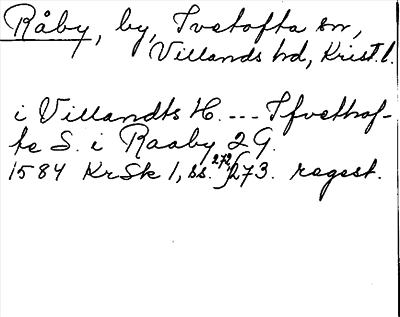 Råby, by, Tvetofta sn,
Villands hd, Krist. l.
i Villandts H. --- Tfvethof-
te S. i Raaby 2 G.
1584 KrSk 1, ss. 272, 273. regest.